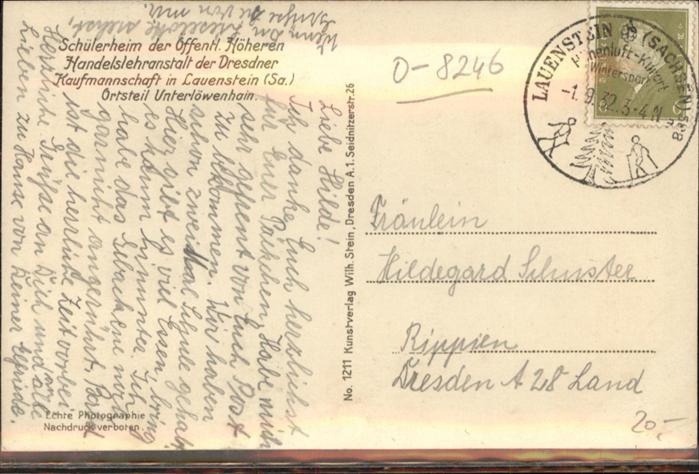 Schülerheim der Öffentl. Höheren
Handelslehranstalt der Dresdner
Kaufmannschaft in Lauenstein (Sa.)
Ortsteil Unterlöwenhain.
0-8246
LAUENSTEIN (SACHSEN)
Höhenluft-Kurort
Wintersport
-1.9.32.3-4N
Liebe Hilde!
Ich danke Euch herzlichst
für Euer Päkchen. Habe mich
sehr gefreut von Euch Post
zu bekommen. Wir haben
schon zweimal Schule gehabt.
Hier gibt es viel Essen, ich bring
es kaum hinunter. Ich
habe das Gebackene noch
garnicht angerührt. Bald
ist die herrliche Zeit vorbei.
Herzliche Grüße an Dich und alle
Lieben zu Hause von Deiner
Wenn Du Lieselotte siehst,
grüße sie von mir.
No. 1211 Kunstverlag Wilh. Stein, Dresden A. 1. Seidnitzerstr. 26
Fräulein
Hildegard Schuster
Rippien
Dresden A 28 Land
Echte Photographie
Nachdruck verboten.
20.-